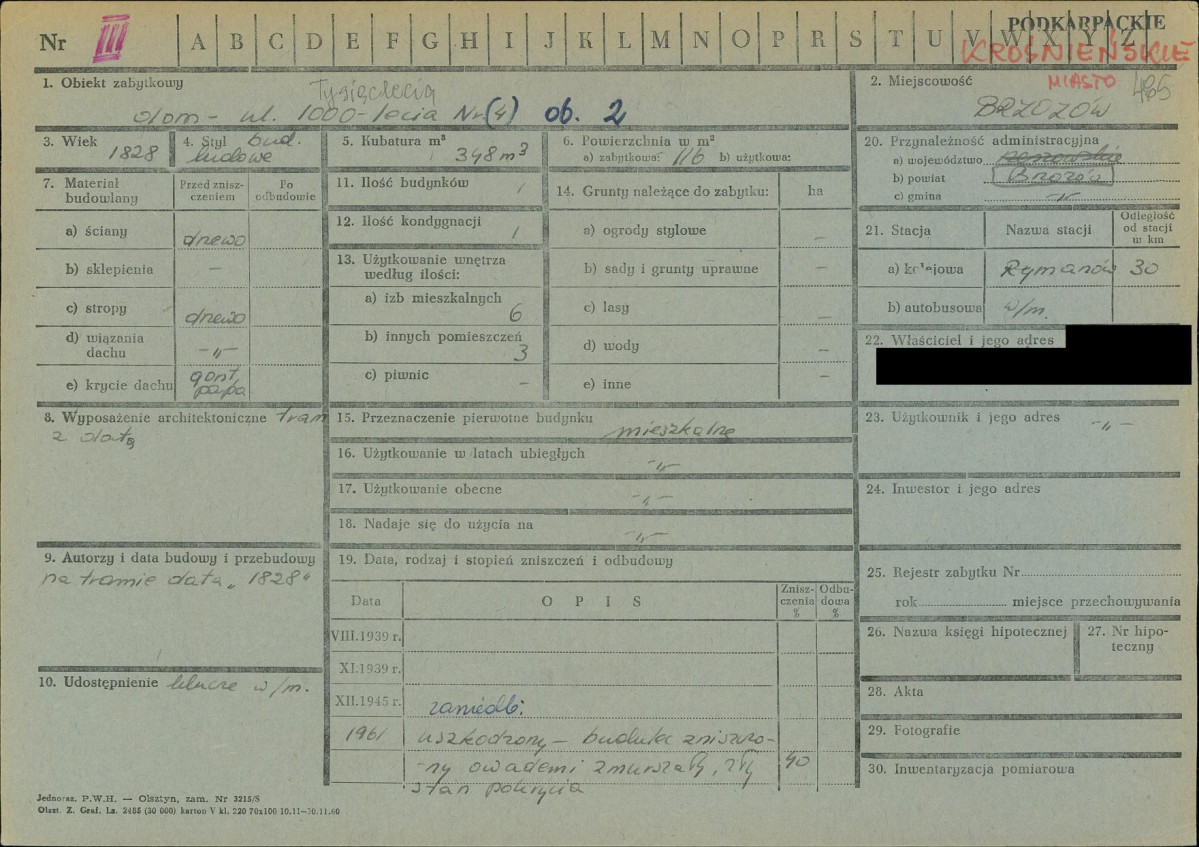 Nr III A B C D E F G H I J K L M N O P R S T U V W X Y Z
PODKARPACKIE
KROŚNIEŃSKIE
MIASTO
1. Obiekt zabytkowy
Tysiąclecia
dom - ul. 1000-lecia Nr (4) ob. 2
2. Miejscowość
BRZOZÓW
3. Wiek 1828
4. Styl bud.
ludowe
5. Kubatura m³ 348 m³
6. Powierzchnia w m²
a) zabytkowa: 116 b) użytkowa:
7. Materiał budowlany
Przed zniszczeniem
Po odbudowie
a) ściany drewo
b) sklepienia –
c) stropy drewo
d) wiązania dachu –„–
e) krycie dachu gont, papa
8. Wyposażenie architektoniczne tram
z datą
9. Autorzy i data budowy i przebudowy
na tramie data „1828"
10. Udostępnienie klucze w/m.
11. Ilość budynków 1
12. Ilość kondygnacji 1
13. Użytkowanie wnętrza według ilości:
a) izb mieszkalnych 6
b) innych pomieszczeń 3
c) piwnic –
14. Grunty należące do zabytku: ha
a) ogrody stylowe –
b) sady i grunty uprawne –
c) lasy –
d) wody –
e) inne –
15. Przeznaczenie pierwotne budynku mieszkalne
16. Użytkowanie w latach ubiegłych –„–
17. Użytkowanie obecne –„–
18. Nadaje się do użycia na –„–
19. Data, rodzaj i stopień zniszczeń i odbudowy
Data OPIS Zniszczenia % Odbudowa %
VIII.1939 r.
XI.1939 r.
XII.1945 r. zaniedb.
1961 uszkodzony – budulec zniszczo-
-ny owadami zmurszały, zły 40
stan pokrycia
20. Przynależność administracyjna
a) województwo rzeszowskie
b) powiat Brzozów
c) gmina –„–
21. Stacja Nazwa stacji Odległość od stacji w km
a) kolejowa Rymanów 30
b) autobusowa w/m.
22. Właściciel i jego adres
23. Użytkownik i jego adres –„–
24. Inwestor i jego adres
25. Rejestr zabytku Nr
rok miejsce przechowywania
26. Nazwa księgi hipotecznej
27. Nr hipoteczny
28. Akta
29. Fotografie
30. Inwentaryzacja pomiarowa
Jednoraz. P.W.H. — Olsztyn, zam. Nr 3215/S
Olszt. Z. Graf. Lz. 2485 (30 000) karton V kl. 220 70x100 10.11–30.11.60